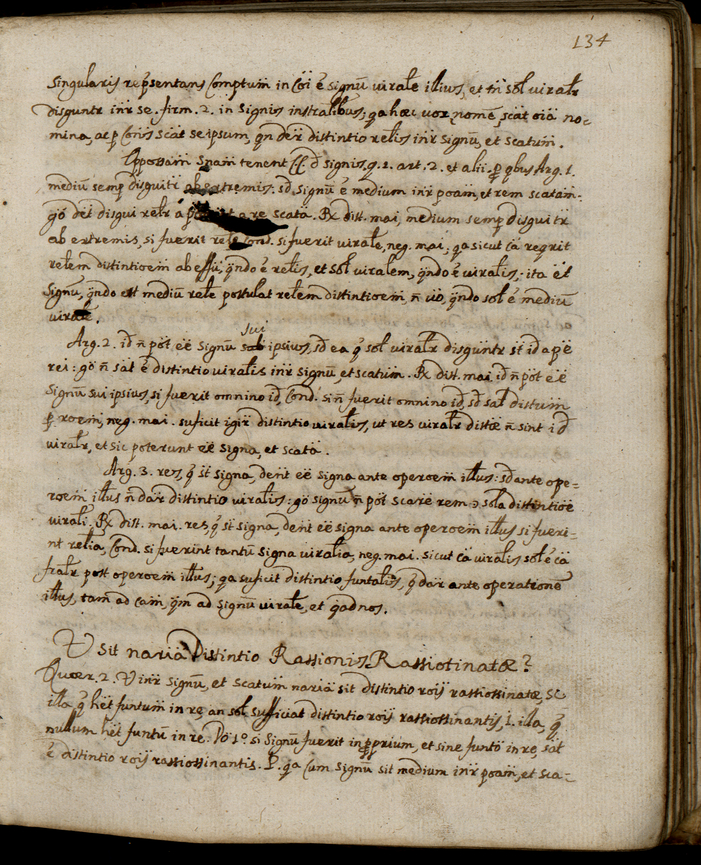 134
singularis repsentans Comptum in Coi é signū virale illius, et tn̄ sol viralr
disguntr inr se. firm. 2. in signis instralibus, qa hæc vox nomē, scat oīa no=
mina, ac p Conis scāt se ipsum, qn dēr distintio relis inr signū, et scatum.
Oppossam̄ snam̄ tenent CC d signis, q. 1. art. 2. et alii. p qbus Arg. 1.
mediū semp disguitr ab extremis: sd signū é medium inr poam̄, et rem scatam:
go dēt disgui relr a a re scata. Rx dist. mai, medium semp disguitr
ab extremis, si fuerit rele Cond. si fuerit virale, neg. mai; qa sicut ca reqrit
relem distintioem̄ ab effu, qndo é relis, et sol viralem, qndo é viralis; ita et
signū, qndo est mediū rele postulat relem distintioem̄, n̄ vo, qndo sol é mediū
virale.
Arg. 2. id n̄ pōt eē signū sui ipsius, sd ea q sol viralr disguntr st id a pe
rei: go n̄ sat é distintio viralis inr signū, et scatum. Rx dist. mai. id n̄ pōt eē
signū sui ipsius, si fuerit omnino id, Cond. si n̄ fuerit omnino id, sd sal distum
p roem̄, neg. mai. suficit igir distintio viralis, ut res viralr distæ n̄ sint id
viralr, et sic poterunt eē signa, et scata.
Arg. 3. res, q st signa, dent eē signa ante operoem̄ illus: sd ante ope=
roem̄ illus n̄ dar distintio viralis: go signū n̄ pōt scare rem sola distintioe
virali. Rx dist. mai. res, q st signa, dent eē signa ante operoem̄ illus si fueri=
nt relia, Cond. si fuerint tantū signa viralia, neg. mai. sicut ca viralis sol é ca
fralr post operoem̄ illus; qa suficit distintio funtalis, q dar ante operationē
illus, tam ad cam̄, qm ad signū virale, et qad nos.
V sit naria Distintio Rassionis Rassiotinatæ?
Quær. 2. V inr signū, et scatum naria sit distintio rois rassiossinatæ, sc
illa, q het funtum in re, an sol sufficiat distintio rois rassiossinantis, i. illa, q
nullum het funtū in re. Do 1º. si signū fuerit impprium, et sine funto in re, sat
é distintio rois rassiossinantis. P. qa Cum signū sit medium inr poam̄, et sca=